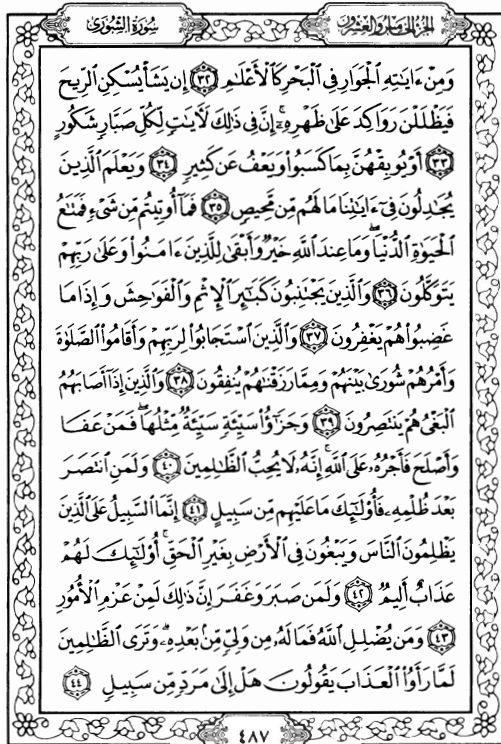 سُورَةُ الشُّورَىٰ
الجُزْءُ الخَامِسُ وَالعِشْرُونَ
وَمِنْ ءَايَٰتِهِ ٱلْجَوَارِ فِى ٱلْبَحْرِ كَٱلْأَعْلَٰمِ ٣٢ إِن يَشَأْ يُسْكِنِ ٱلرِّيحَ
فَيَظْلَلْنَ رَوَاكِدَ عَلَىٰ ظَهْرِهِۦٓ إِنَّ فِى ذَٰلِكَ لَءَايَٰتٍ لِّكُلِّ صَبَّارٍ شَكُورٍ
٣٣ أَوْ يُوبِقْهُنَّ بِمَا كَسَبُوا۟ وَيَعْفُ عَن كَثِيرٍ ٣٤ وَيَعْلَمَ ٱلَّذِينَ
يُجَٰدِلُونَ فِىٓ ءَايَٰتِنَا مَا لَهُم مِّن مَّحِيصٍ ٣٥ فَمَآ أُوتِيتُم مِّن شَىْءٍ فَمَتَٰعُ
ٱلْحَيَوٰةِ ٱلدُّنْيَا ۖ وَمَا عِندَ ٱللَّهِ خَيْرٌ وَأَبْقَىٰ لِلَّذِينَ ءَامَنُوا۟ وَعَلَىٰ رَبِّهِمْ
يَتَوَكَّلُونَ ٣٦ وَٱلَّذِينَ يَجْتَنِبُونَ كَبَٰٓئِرَ ٱلْإِثْمِ وَٱلْفَوَٰحِشَ وَإِذَا مَا
غَضِبُوا۟ هُمْ يَغْفِرُونَ ٣٧ وَٱلَّذِينَ ٱسْتَجَابُوا۟ لِرَبِّهِمْ وَأَقَامُوا۟ ٱلصَّلَوٰةَ
وَأَمْرُهُمْ شُورَىٰ بَيْنَهُمْ وَمِمَّا رَزَقْنَٰهُمْ يُنفِقُونَ ٣٨ وَٱلَّذِينَ إِذَآ أَصَابَهُمُ
ٱلْبَغْىُ هُمْ يَنتَصِرُونَ ٣٩ وَجَزَٰٓؤُا۟ سَيِّئَةٍ سَيِّئَةٌ مِّثْلُهَا ۖ فَمَنْ عَفَا
وَأَصْلَحَ فَأَجْرُهُۥ عَلَى ٱللَّهِ ۚ إِنَّهُۥ لَا يُحِبُّ ٱلظَّٰلِمِينَ ٤٠ وَلَمَنِ ٱنتَصَرَ
بَعْدَ ظُلْمِهِۦ فَأُو۟لَٰٓئِكَ مَا عَلَيْهِم مِّن سَبِيلٍ ٤١ إِنَّمَا ٱلسَّبِيلُ عَلَى ٱلَّذِينَ
يَظْلِمُونَ ٱلنَّاسَ وَيَبْغُونَ فِى ٱلْأَرْضِ بِغَيْرِ ٱلْحَقِّ ۚ أُو۟لَٰٓئِكَ لَهُمْ
عَذَابٌ أَلِيمٌ ٤٢ وَلَمَن صَبَرَ وَغَفَرَ إِنَّ ذَٰلِكَ لَمِنْ عَزْمِ ٱلْأُمُورِ
٤٣ وَمَن يُضْلِلِ ٱللَّهُ فَمَا لَهُۥ مِن وَلِىٍّ مِّنۢ بَعْدِهِۦ ۗ وَتَرَى ٱلظَّٰلِمِينَ
لَمَّا رَأَوُا۟ ٱلْعَذَابَ يَقُولُونَ هَلْ إِلَىٰ مَرَدٍّ مِّن سَبِيلٍ ٤٤
٤٨٧